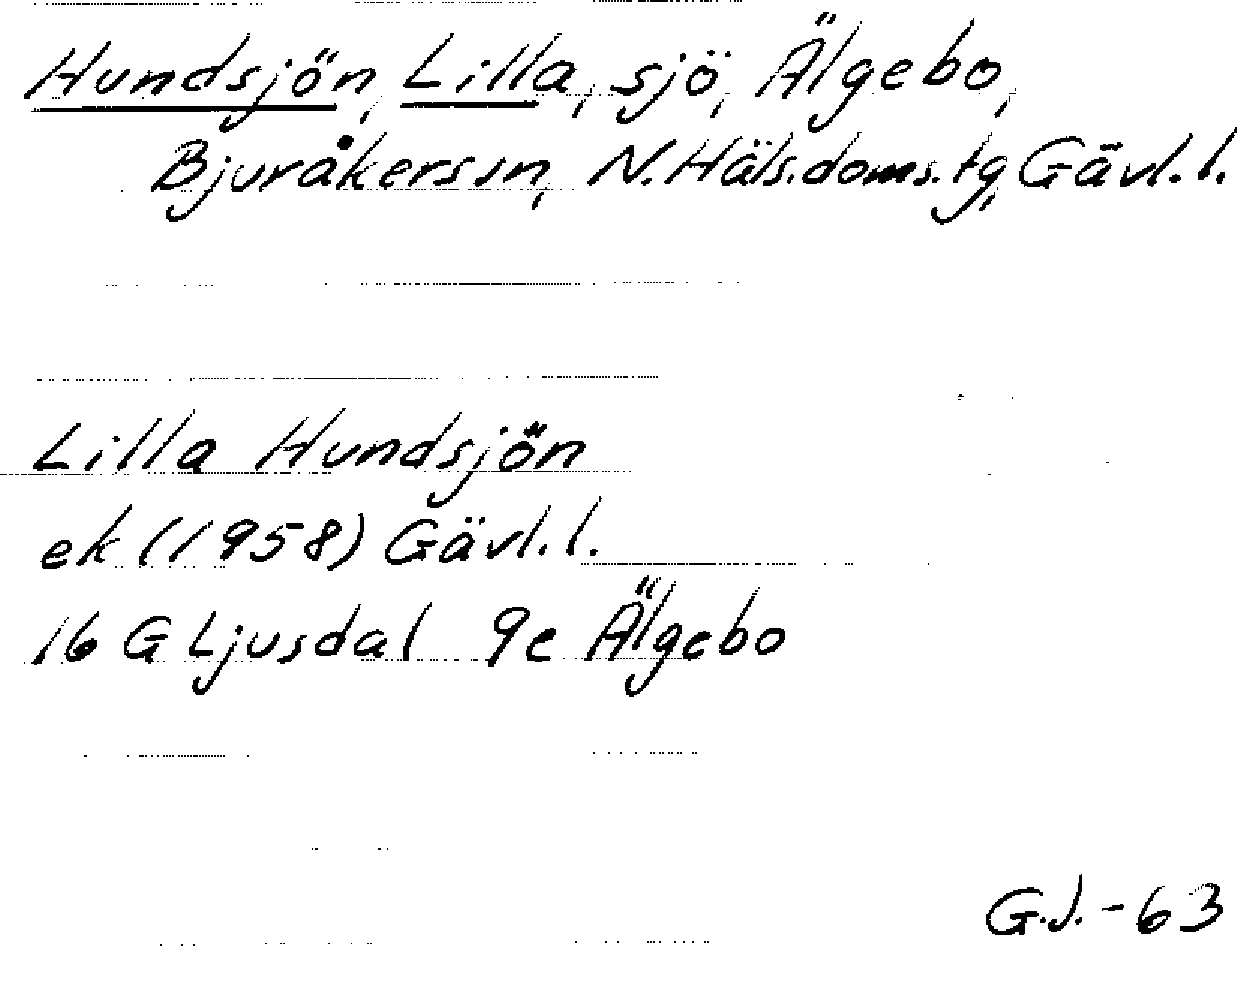 Hundsjön, Lilla, sjö, Älgebo,
Bjuråkers sn, N. Häls. doms. tg, Gävl. l.
Lilla Hundsjön
ek (1958) Gävl. l.
16 G Ljusdal 9e Älgebo
G.J. - 63